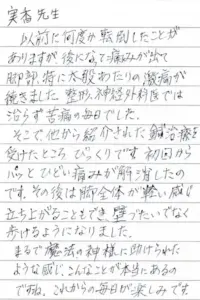 実香先生
以前に何度か転倒したことが
ありますが後になって痛みが出て
脚部、特に太股あたりの激痛が
続きました 整形、神経外科医では
治らず苦痛の毎日でした。
そこで他から紹介された鍼治療を
受けたところ びっくりです 初回から
パッとひどい痛みが解消したの
です。その後は脚全体が軽い感じ
立ち上がることもでき 壁づたいでなく
歩けるようになりました。
まるで魔法の神様に助けられた
ような感じ、こんなことが本当にあるの
ですね。これからの毎日が楽しみです。